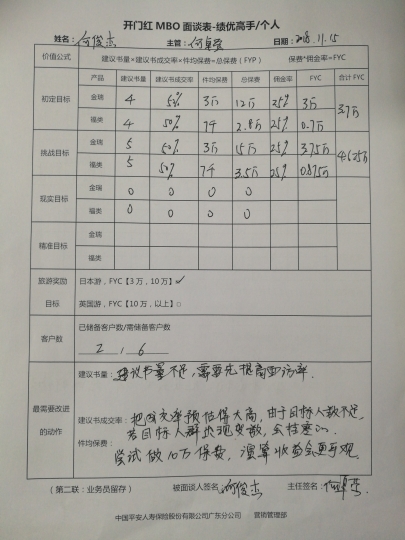 开门红 MBO 面谈表-绩优高手/个人
姓名： 何俊杰 主管： 日期：2018.11.15
价值公式 建议书量×建议书成交率×件均保费=总保费（FYP） 保费*佣金率=FYC
产品 建议书量 建议书成交率 件均保费 总保费 佣金率 FYC 合计 FYC
初定目标 金瑞 4 50% 3万 12万 25% 3万 3.7万
福类 4 50% 7千 2.8万 25% 0.7万
挑战目标 金瑞 5 50% 3万 15万 25% 3.75万 4.625万
福类 5 50% 7千 3.5万 25% 0.875万
现实目标 金瑞 0 0 0 0
福类 0 0 0 0
精准目标 金瑞
福类
旅游奖励目标 日本游，FYC【3 万，10 万】✓
英国游，FYC【10 万，以上】○
客户数 已储备客户数/需储备客户数
2 , 6
最需要改进的动作 建议书量： 建议书量不足，需要先提高面访率.
建议书成交率： 把成交率预估得太高，由于目标人数不足，
若目标人群出现变数，会 .
件均保费： 尝试做10万保费， 收益会更可观.
（第二联：业务员留存） 被面谈人签名：何俊杰 主任签名：
中国平安人寿保险股份有限公司广东分公司 · 营销管理部